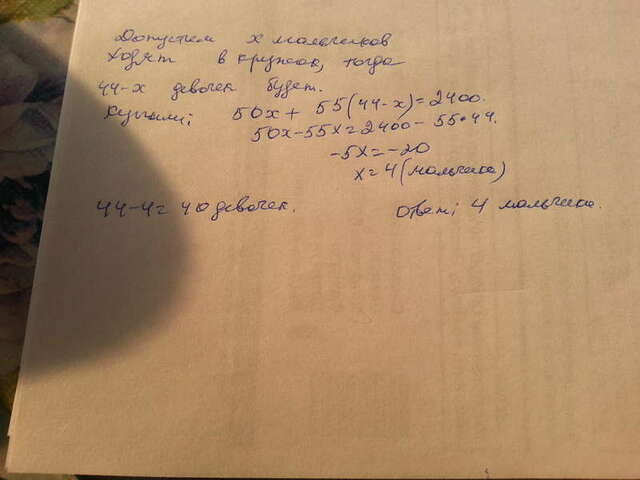 Допустим x мальчиков
ходят в кружок, тогда
44-x девочек будет.
Купили: 50x + 55(44-x)=2400.
50x-55x=2400-55•44.
-5x=-20
x=4(мальчика)
44-4=40 девочек.
Ответ: 4 мальчика.